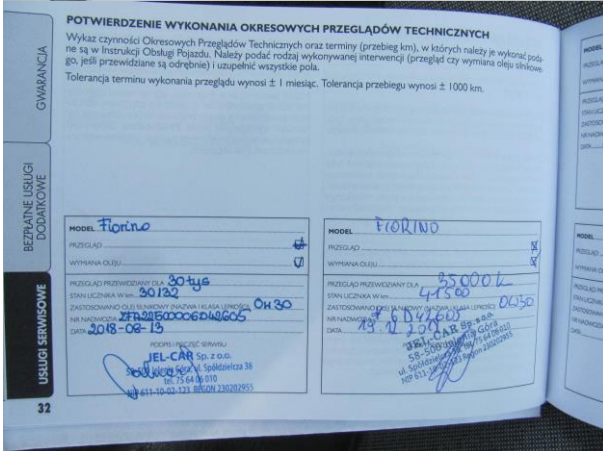 POTWIERDZENIE WYKONANIA OKRESOWYCH PRZEGLĄDÓW TECHNICZNYCH
Wykaz czynności Okresowych Przeglądów Technicznych oraz terminy (przebieg km), w których należy je wykonać poda-
ne są w Instrukcji Obsługi Pojazdu. Należy podać rodzaj wykonywanej interwencji (przegląd czy wymiana oleju silnikowe-
go, jeśli przewidziane są odrębnie) i uzupełnić wszystkie pola.
Tolerancja terminu wykonania przeglądu wynosi ± 1 miesiąc. Tolerancja przebiegu wynosi ± 1000 km.
GWARANCJA
BEZPŁATNE USŁUGI
DODATKOWE
USŁUGI SERWISOWE
MODEL Fiorino
PRZEGLĄD
WYMIANA OLEJU
PRZEGLĄD PRZEWIDZIANY DLA 30 tys
STAN LICZNIKA W km 30132
ZASTOSOWANO OLEJ SILNIKOWY (NAZWA I KLASA LEPKOŚCI) 0W30
NR NADWOZIA ZFA22500006D42605
DATA 2018-08-13
PODPIS I PIECZĘĆ SERWISU
JEL-CAR Sp. z o.o.
Jelenia Góra, ul. Spółdzielcza 38
tel. 75 64 06 010
NIP 611-10-02-123 REGON 230202955
MODEL FIORINO
PRZEGLĄD
WYMIANA OLEJU
PRZEGLĄD PRZEWIDZIANY DLA 35000
STAN LICZNIKA W km 41500
ZASTOSOWANO OLEJ SILNIKOWY (NAZWA I KLASA LEPKOŚCI) 0W30
NR NADWOZIA 6D42605
DATA 19.12.2018
JEL-CAR Sp. z o.o.
58-500 Jelenia Góra
ul. Spółdzielcza 75 64 06 010
NIP 611-10-02-123 Regon 230202955
32
MODEL
MODEL
DATA